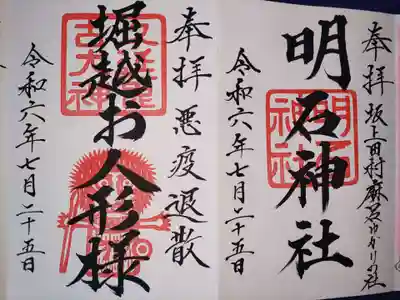 奉拝 坂上田村麻呂ゆかりの社
明石神社
令和六年七月二十五日
奉拝 悪疫退散
堀越お人形様
令和六年七月二十五日